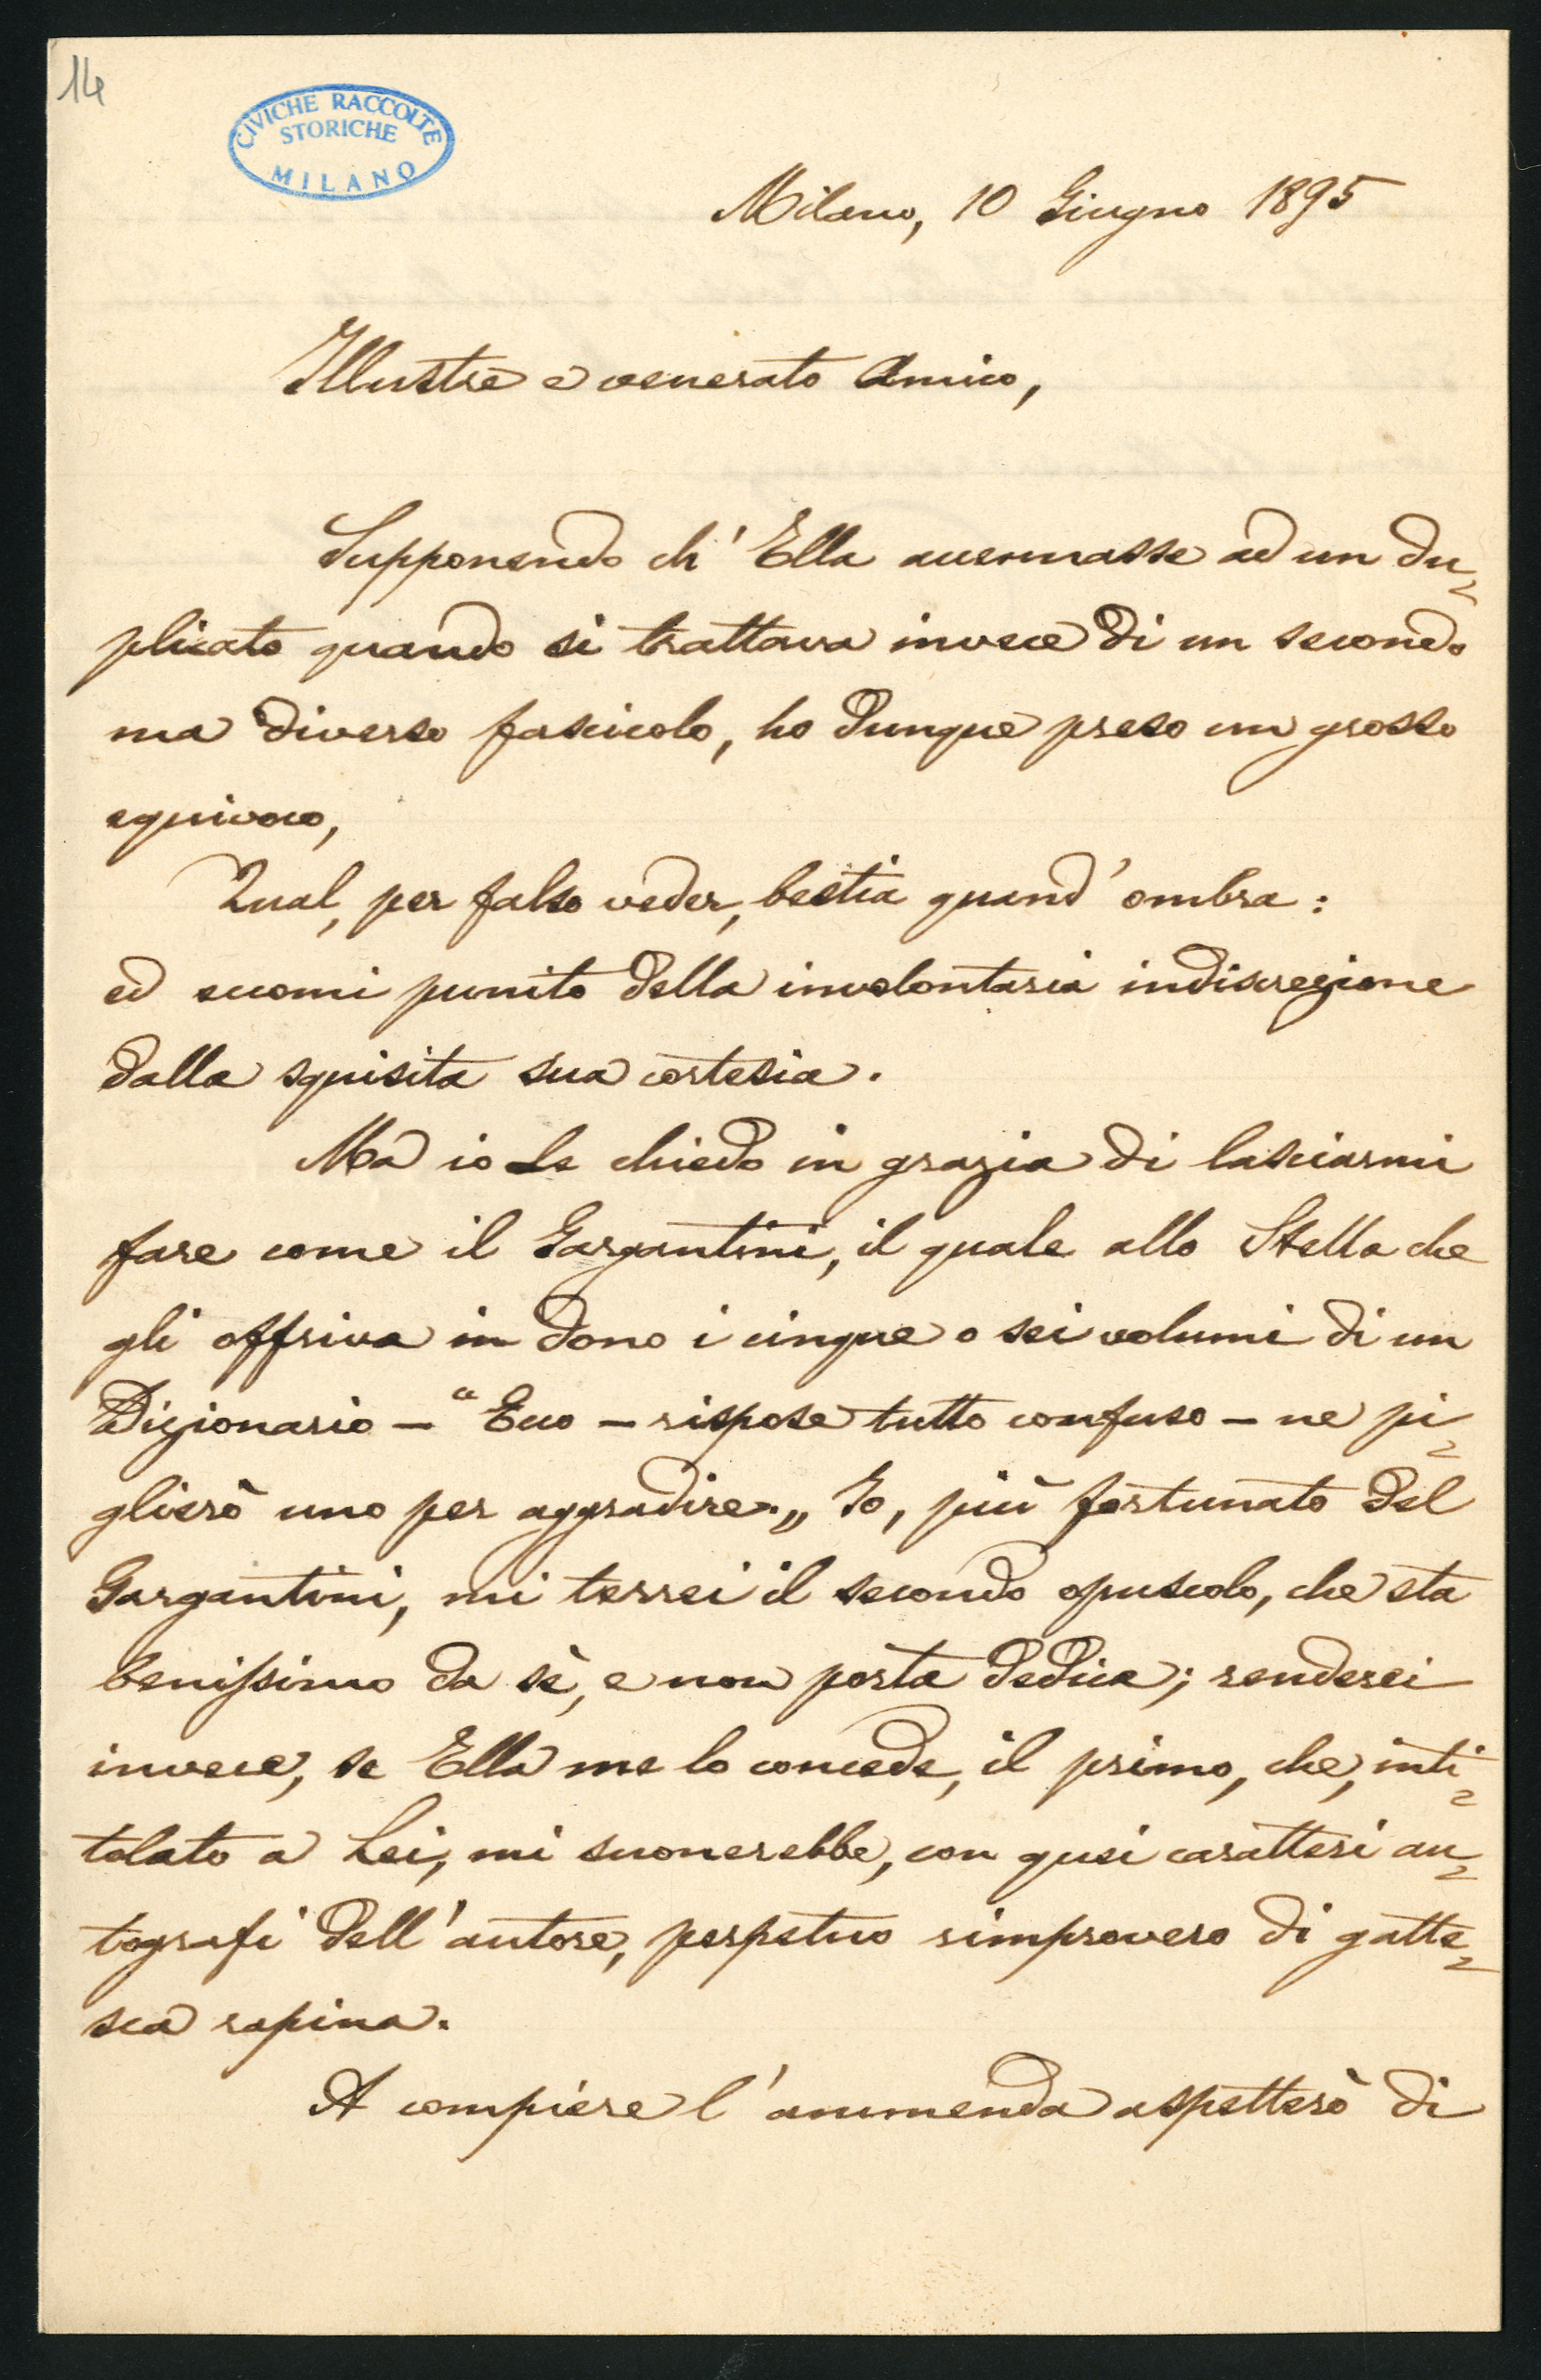 14
CIVICHE RACCOLTE
STORICHE
MILANO
Milano, 10 Giugno 1895
Illustre e venerato Amico,
Supponendo ch' Ella accennasse ad un du-
plicato quando si trattava invece di un secondo
ma diverso fascicolo, ho dunque preso un grosso
equivoco,
Qual, per falso veder, bestia quand' ombra:
ed eccomi punito della involontaria indiscrezione
dalla squisita sua cortesia.
Ma io Le chiedo in grazia di lasciarmi
fare come il Gargantini, il quale allo Stella che
gli offriva in dono i cinque o sei volumi di un
Dizionario – "Ecco – rispose tutto confuso – ne pi-
glierò uno per aggradire.„ Io, più fortunato del
Gargantini, mi terrei il secondo opuscolo, che sta
benissimo da sè, e non porta dedica; renderei
invece, se Ella me lo concede, il primo, che, inti-
tolato a Lei, mi suonerebbe, con quei caratteri au-
tografi dell' autore, perpetuo rimprovero di gatte-
sca rapina.
A compiere l' ammenda aspetterò di